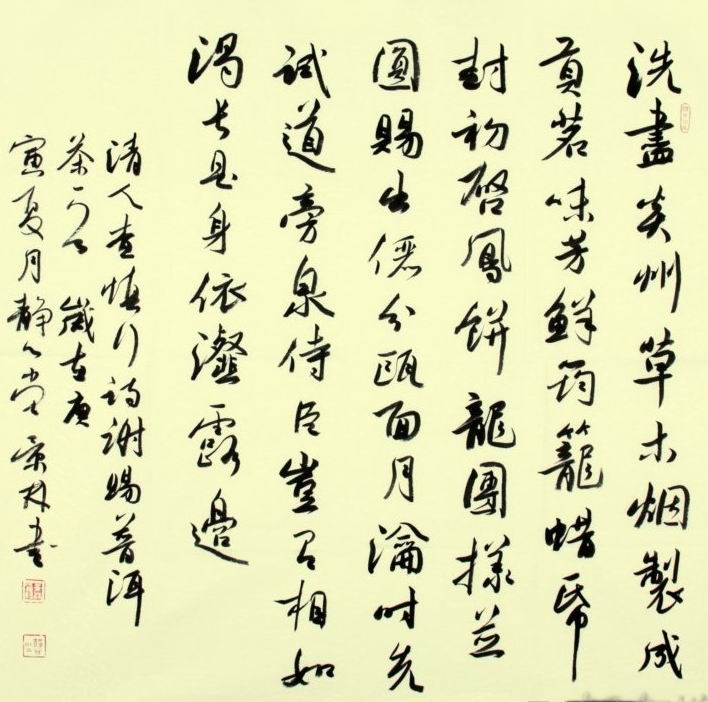 洗盡炎州草木烟製成
貢茗味芳鮮筠籠蜡帋
封初啓鳳餅龍團樣並
圓賜出儼分甌面月瀹时先
試道旁泉侍臣豈有相如
渴长是身依瀣露邊
清人查慎行詩謝賜普洱
茶一首 歲在庚
寅夏月静心堂書